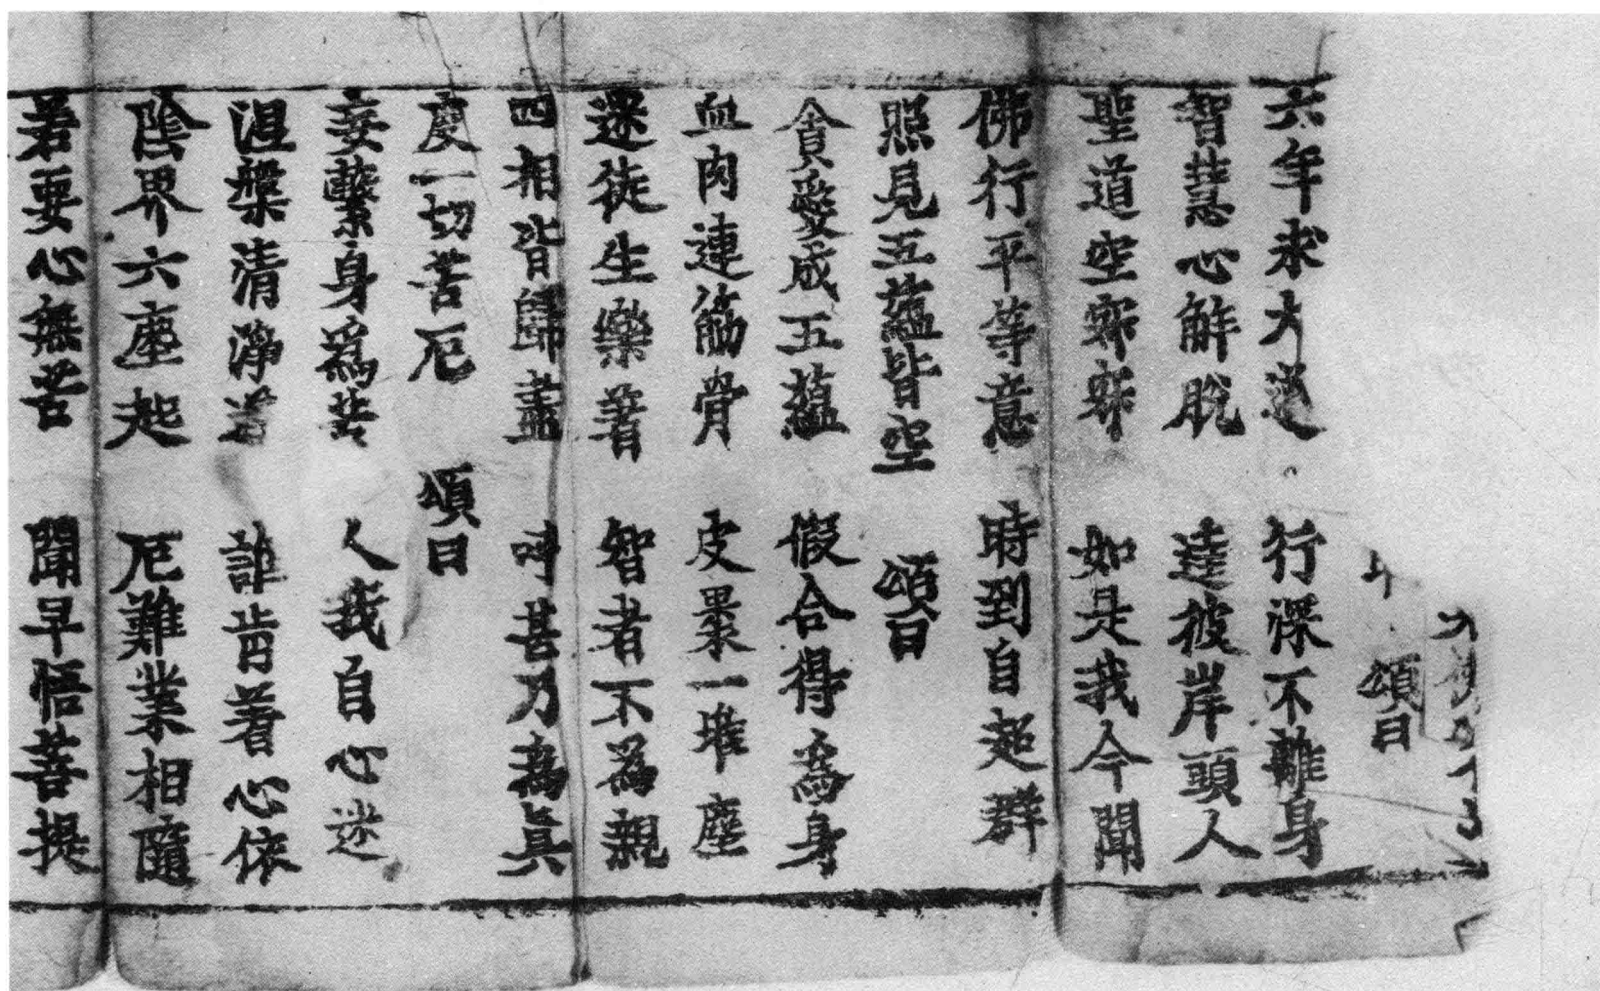 頌曰
六年求大道　行深不離身
智慧心解脫　達彼岸頭人
聖道空寂寂　如是我今聞
佛行平等意　時到自超群
照見五蘊皆空　頌曰
貪愛成五蘊　假合得為身
血肉連筋骨　皮裹一堆塵
迷徒生樂著　智者不為親
四相皆歸盡　呼甚乃為真
度一切苦厄　頌曰
妄繫身為苦　人我自心迷
涅槃清淨道　誰肯著心依
陰界六塵起　厄難業相隨
若要心無苦　聞早悟菩提